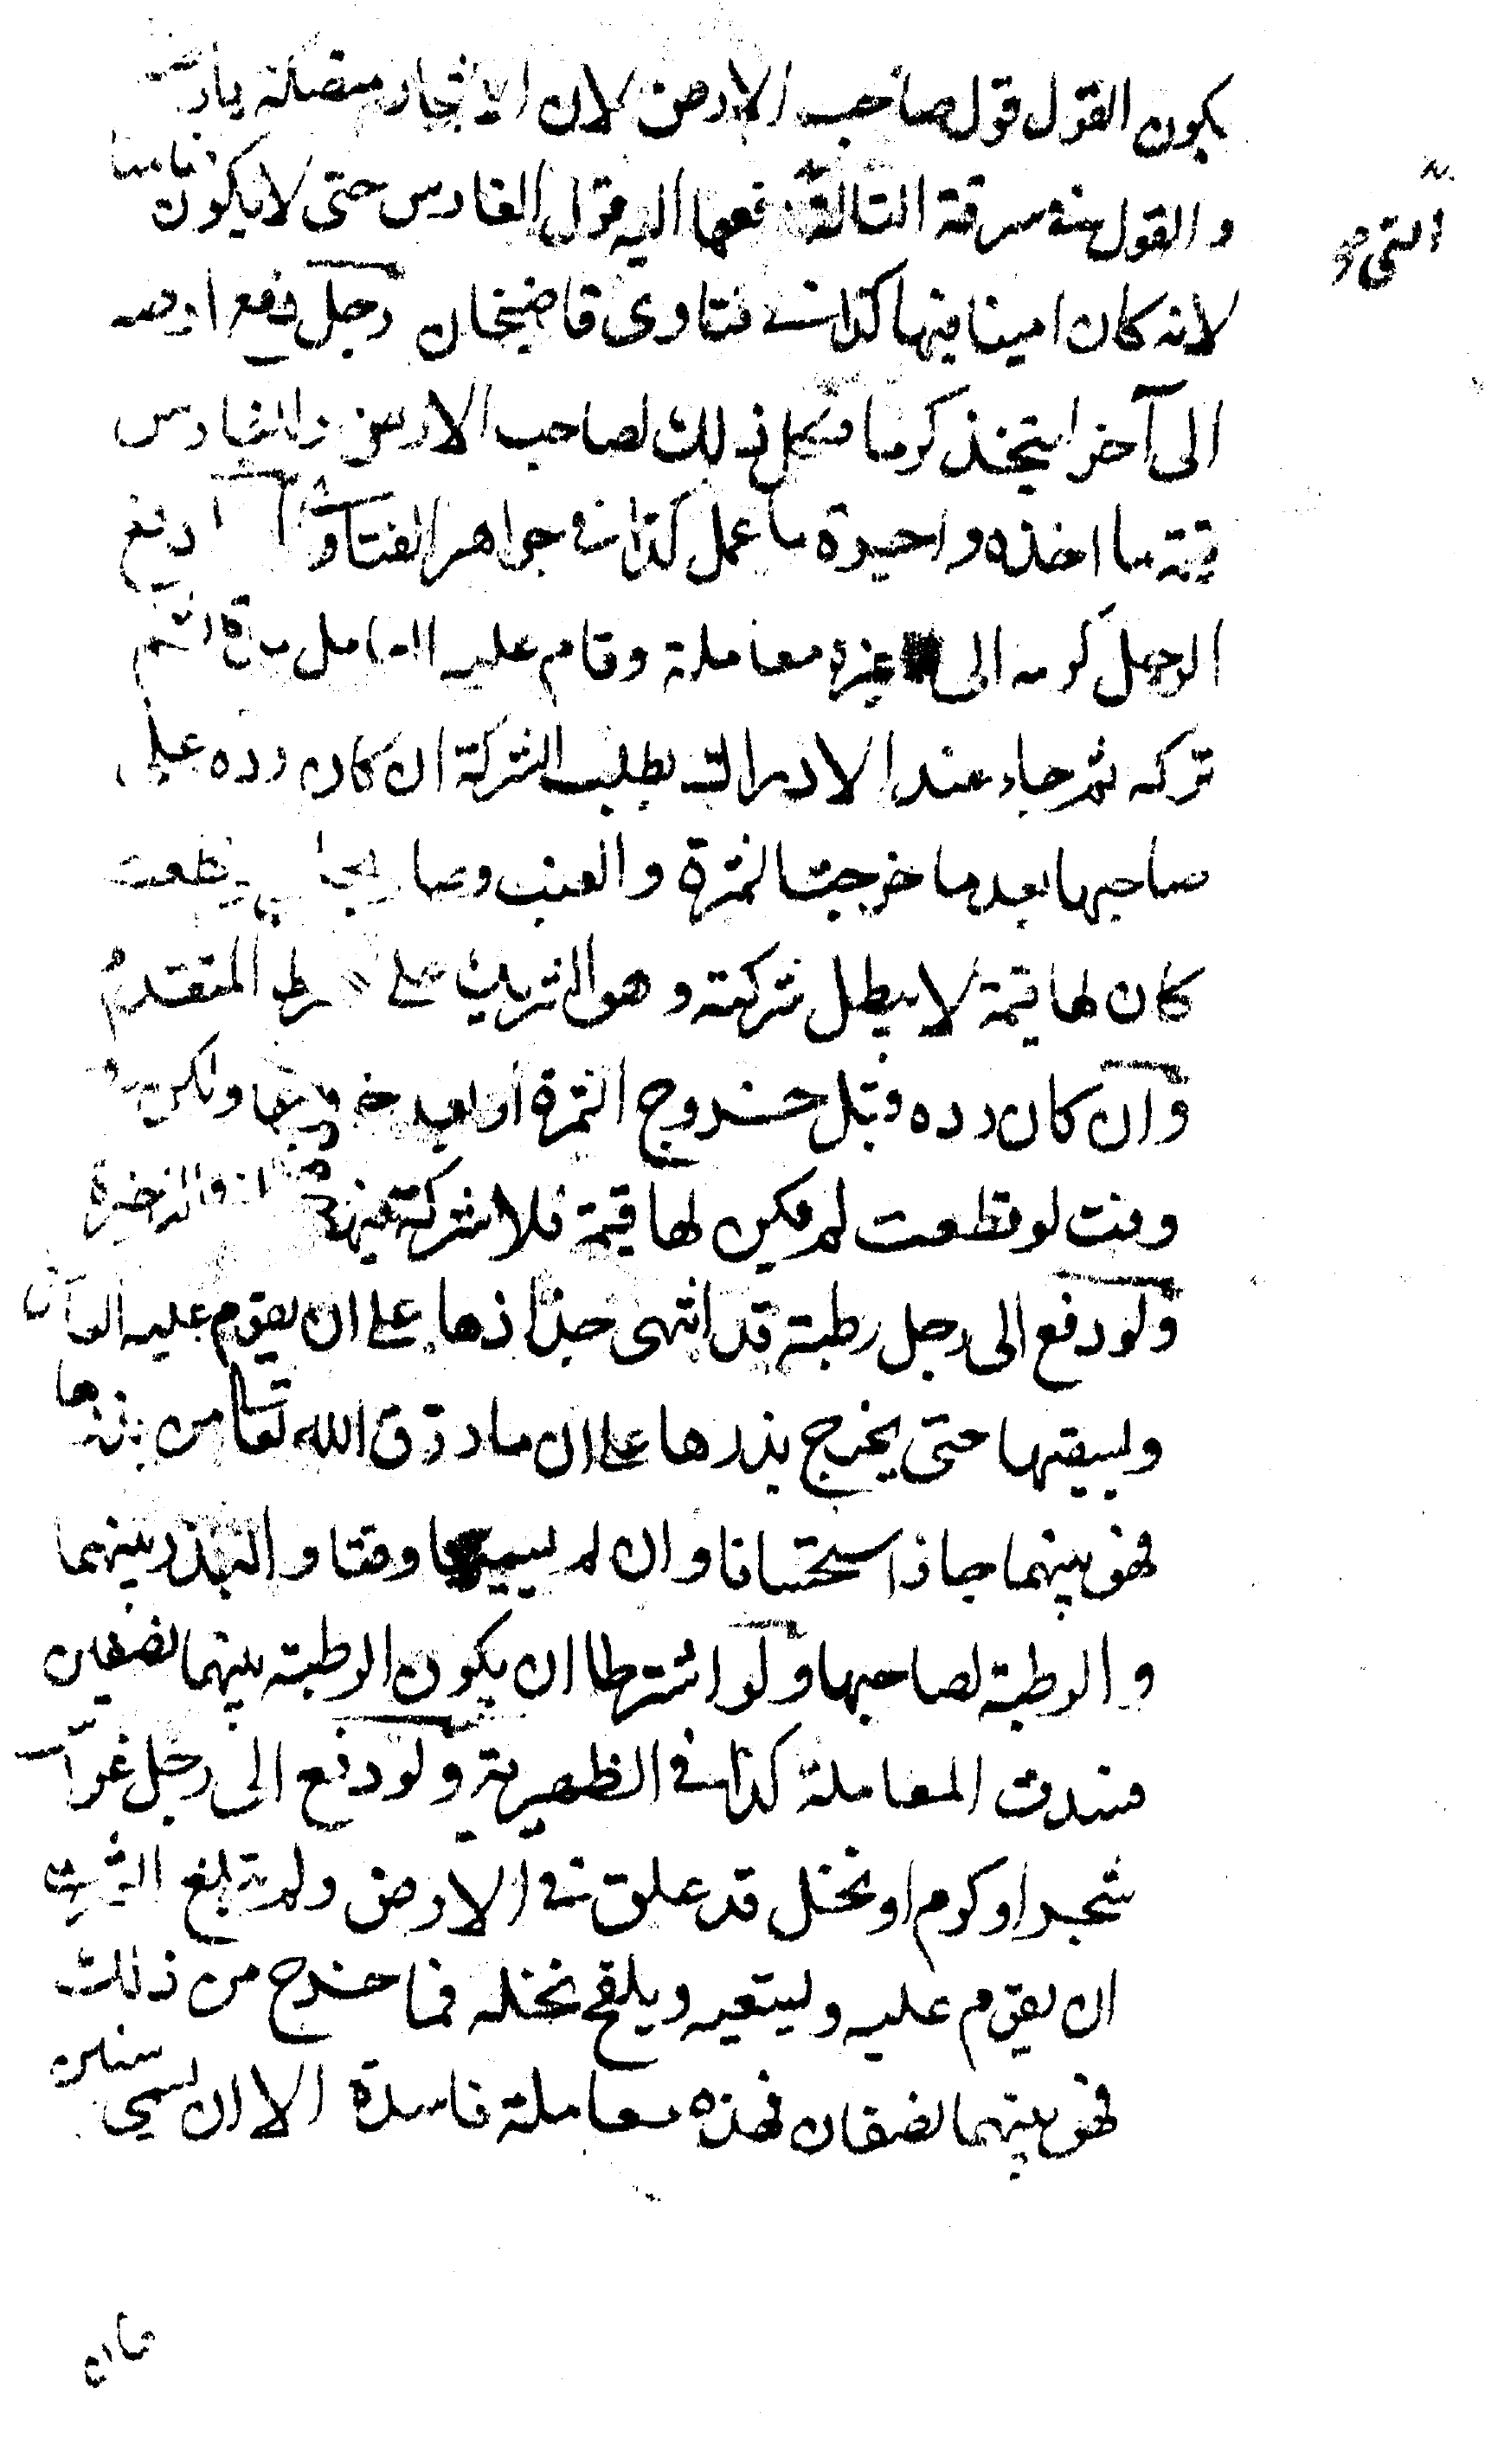 يكون القول قول صاحب الارض لان الاشجار متصلة بارضه
والقول في سرقة التالة دفعها اليه قول الغارس حتى لا يكون ضامنا
التي
لانه كان امينا فيها كذا في فتاوى قاضيخان رجل دفع ارضه
الى آخر ليتخذ كرما فكل ذلك لصاحب الارض وللغارس
قيمة ما اخذه واجرة ما عمل كذا في جواهر الفتاوى دفع
الرجل كرمه الى غيره معاملة وقام عليه العامل مدة ثم
تركه ثم جاء عند الادراك يطلب الشركة ان كان رده على
صاحبها بعد ما خرجت الثمرة والعنب وصار بحال لو قطعت
كان لها قيمة لا يبطل شركته وهو الشريك على الشرط المتقدم
وان كان رده قبل خروج الثمرة او بعد خروجها ولكن في
وقت لو قطعت لم يكن لها قيمة فلا شركة فيها الذخيرة
ولو دفع الى رجل رطبة قد انتهى جذاذها على ان يقوم عليه
ويسقيها حتى يخرج بذرها على ان ما رزق الله تعا من بذرها
فهو بينهما جاز استحسانا وان لم يسميا وقتا والبذر بينهما
والرطبة لصاحبها ولو اشترطا ان يكون الرطبة بينهما نصفين
فسدت المعاملة كذا في الظهيرية ولو دفع الى رجل غراس
شجر او كرم او نخل قد علق في الارض ولم تبلغ الثمر على
ان يقوم عليه ويسقيه ويلقح نخله فما خرج من ذلك
فهو بينهما نصفان فهذه معاملة فاسدة الا ان يسمي سنين